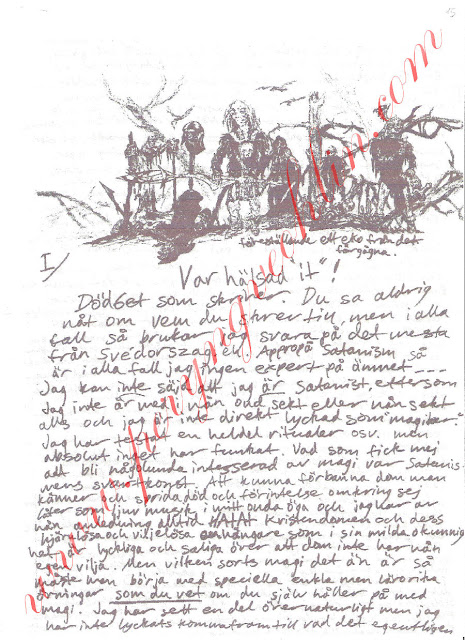 15
föreställande ett eko från det
förgågna.
I/
Var hälsad "it"!
Dödget som skriver. Du sa aldrig
nåt om vem du skrev till, men i alla
fall så brukar jag svara på det mesta
från Svedorszag él. Appropå Satanism, så
är i alla fall jag ingen expert på ämnet
Jag kan inte säja att jag är satanist, eftersom
jag inte är med i nån odd sekt eller nån sekt
alls och jag är inte direkt lyckad som "magiker."
Jag har testat en heldel ritualer osv. men
absolut inget har funkat. Vad som fick mej
att bli någolunda integserad av magi var Satanis-
mens svartkonst. Att kunna förbanna dom man
känner och sprida död och förintelse omkring sej
låter som ljuv musik i mitt onda öga och jag har av
nån anledning alltid HATAT Kristendomen och dess
hjärtlösa och viljelösa anhängare som i sin milda okunnig
het är lyckliga och saliga över att dom inte har nån
egen vilja. Men vilken sorts magi det än är så
måste man börja med speciella enkla men lärorika
övningar som du vet om du själv håller på med
magi. Jag har sett en del övernaturligt men jag
har inte lyckats komma fram till vad det egentligen
www.is-peryngveohlin.com